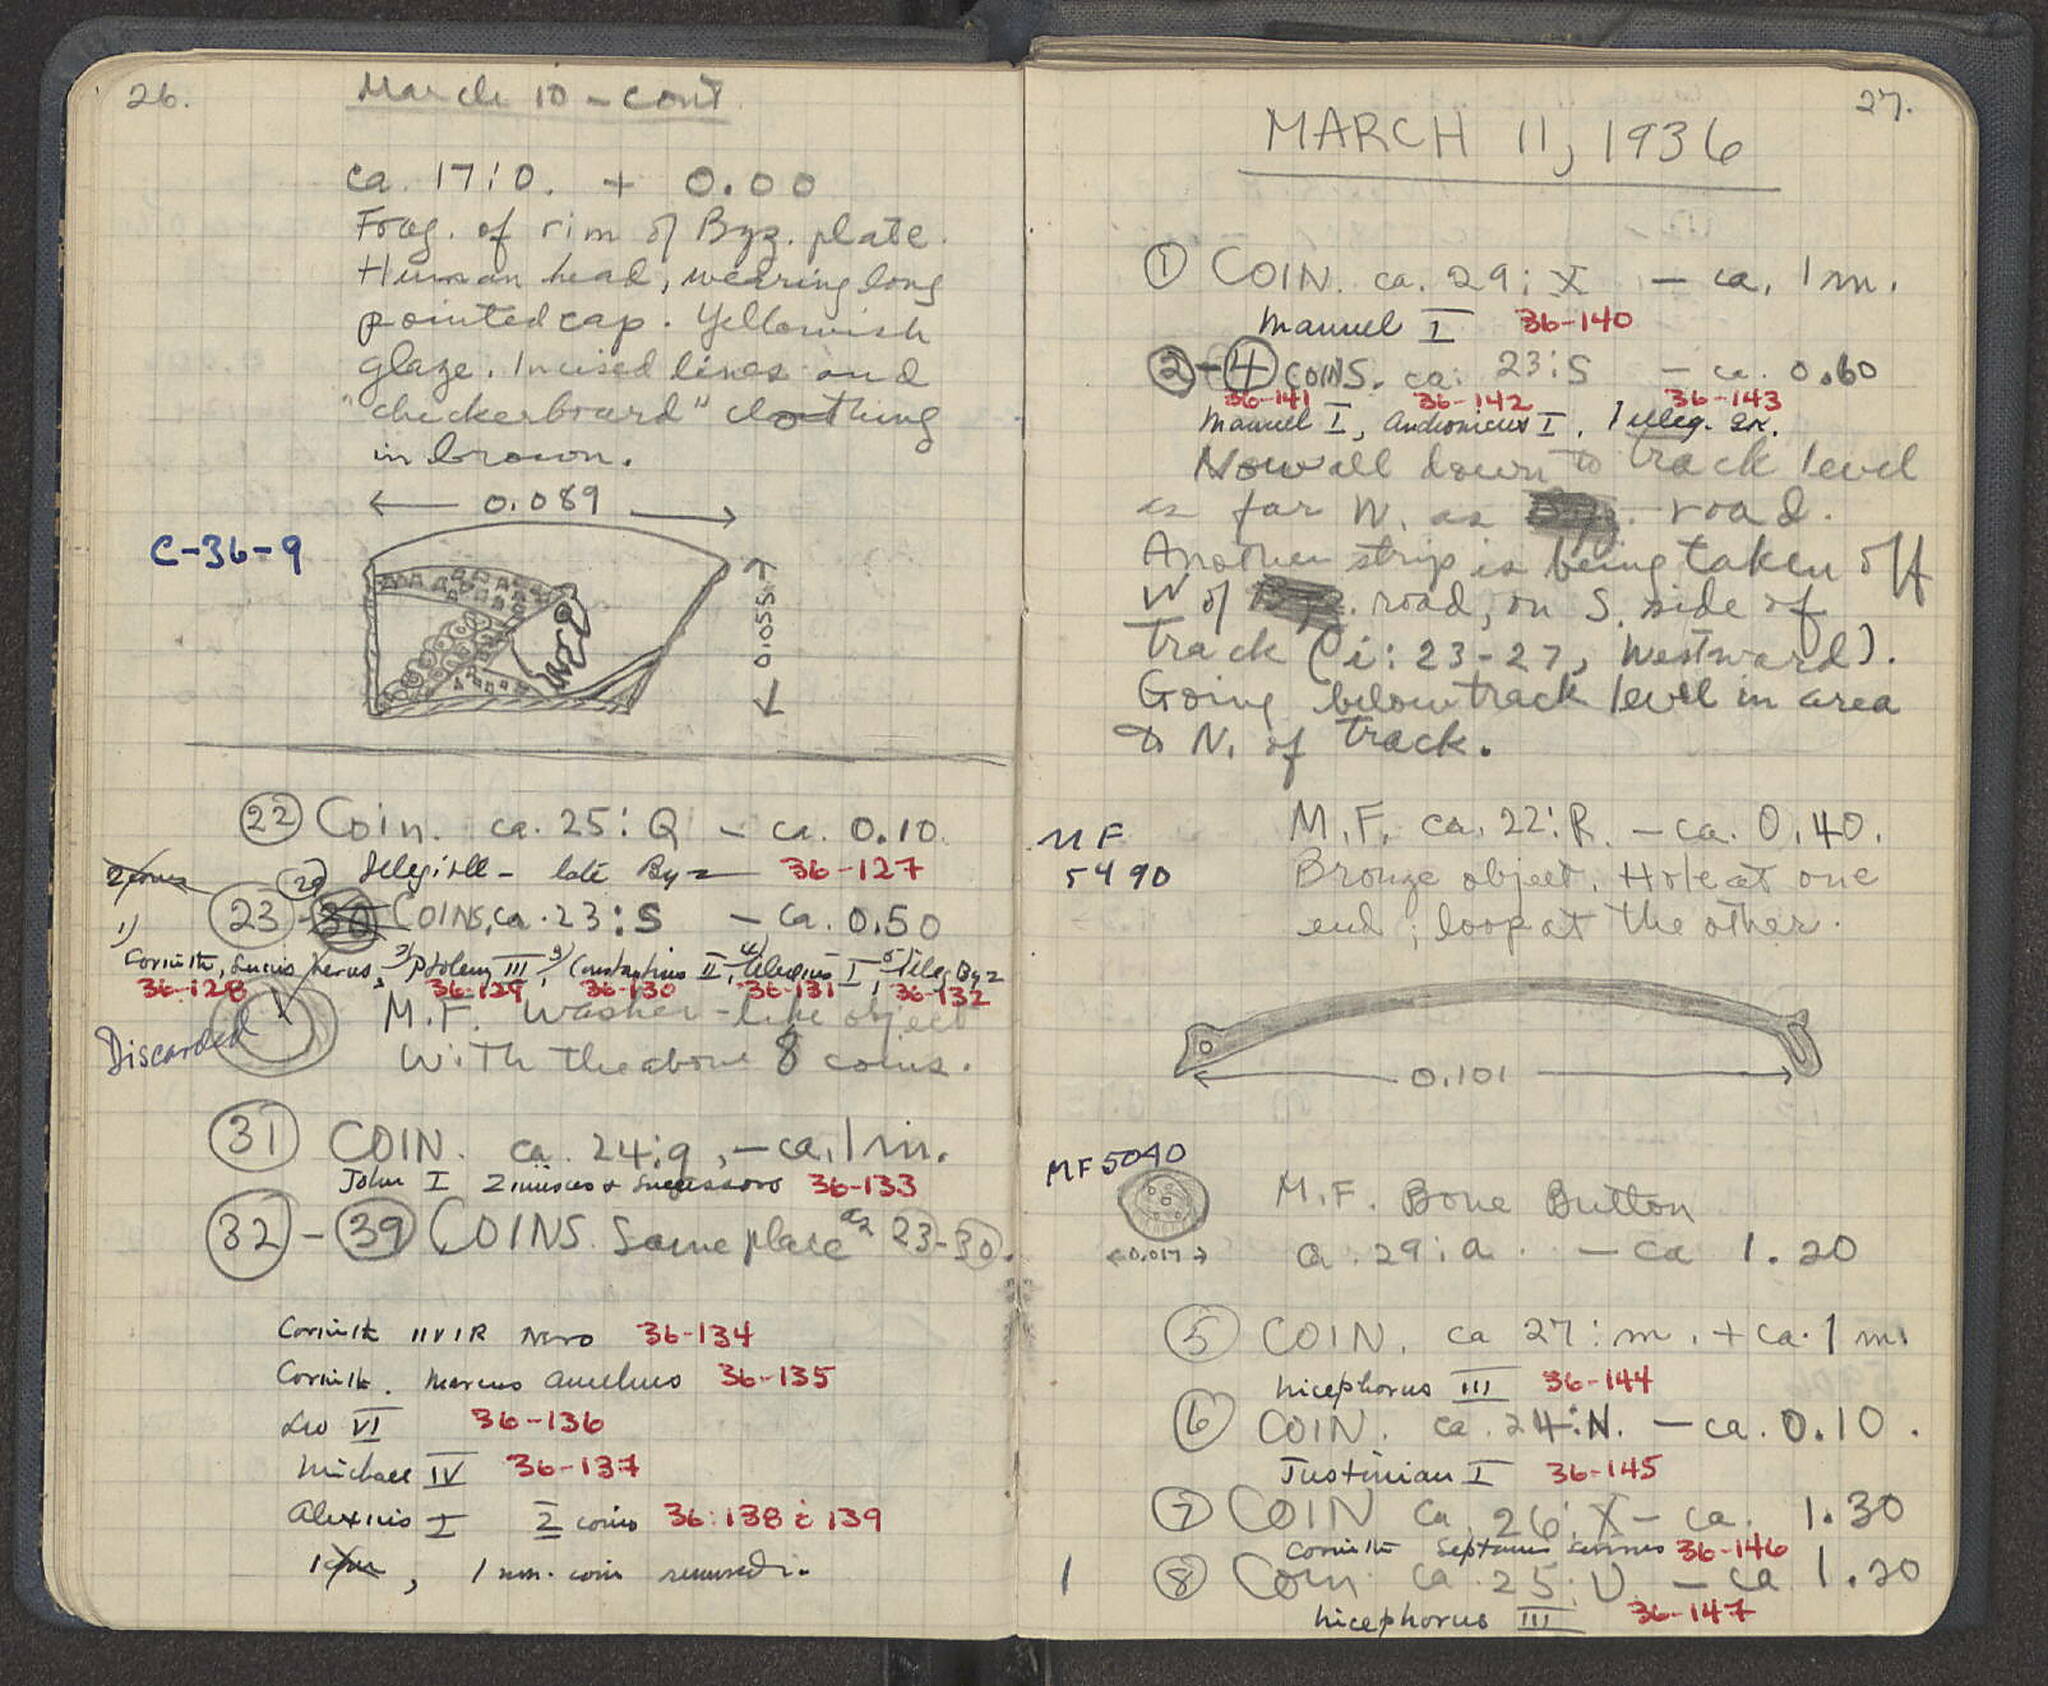 26.
March 10 - cont
ca. 17:O. + 0.00
Frag. of rim of Byz. plate.
Human head, wearing long
pointed cap. Yellowish
glaze. Incised lines and
"checkerboard" clothing
in brown.
0.089
C-36-9
0.055
22 Coin. ca. 25:Q - ca. 0.10.
Illegible - late Byz 36-127
2 coins
29
23-30 COINS, ca. 23:S - ca. 0.50
1) Corinth, Lucius Verus, 2) Ptolemy III, 3) Constantius II, 4) Alexius I, 5) Illeg Byz
36-128 36-129 36-130 36-131 36-132
M.F. Washer-like object
Discarded
With the above 8 coins.
31 COIN. ca. 24:q, - ca. 1 m.
John I Zimisces & Successors 36-133
32 - 39 COINS. Same place as 23-30.
Corinth IIVIR Nero 36-134
Corinth. Marcus Aurelius 36-135
Leo VI 36-136
Michael IV 36-137
Alexius I 2 coins 36:138 & 139
, 1 mn. coin
27.
MARCH 11, 1936
1 COIN. ca. 29:X - ca. 1 m.
Manuel I 36-140
2-4 COINS. ca. 23:S - ca. 0.60
36-141 36-142 36-143
Manuel I, Andronicus I, 1 illeg.
Now all down to track level
as far W. as road.
Another strip is being taken off
W of road, on S. side of
track (i: 23-27, Westward).
Going below track level in area
to N. of track.
MF
5490
M.F. ca. 22:R. - ca. 0.40.
Bronze object. Hole at one
end; loop at the other.
0.101
MF 5040
M.F. Bone Button
0.017
ca. 29:a. - ca 1.20
5 COIN. ca 27:m. + ca. 1 m.
Nicephorus III 36-144
6 COIN. ca. 24:N. - ca. 0.10.
Justinian I 36-145
7 COIN ca. 26:X - ca. 1.30
Corinth Septimius Severus 36-146
1 8 Coin ca. 25:U - ca 1.20
Nicephorus III 36-147